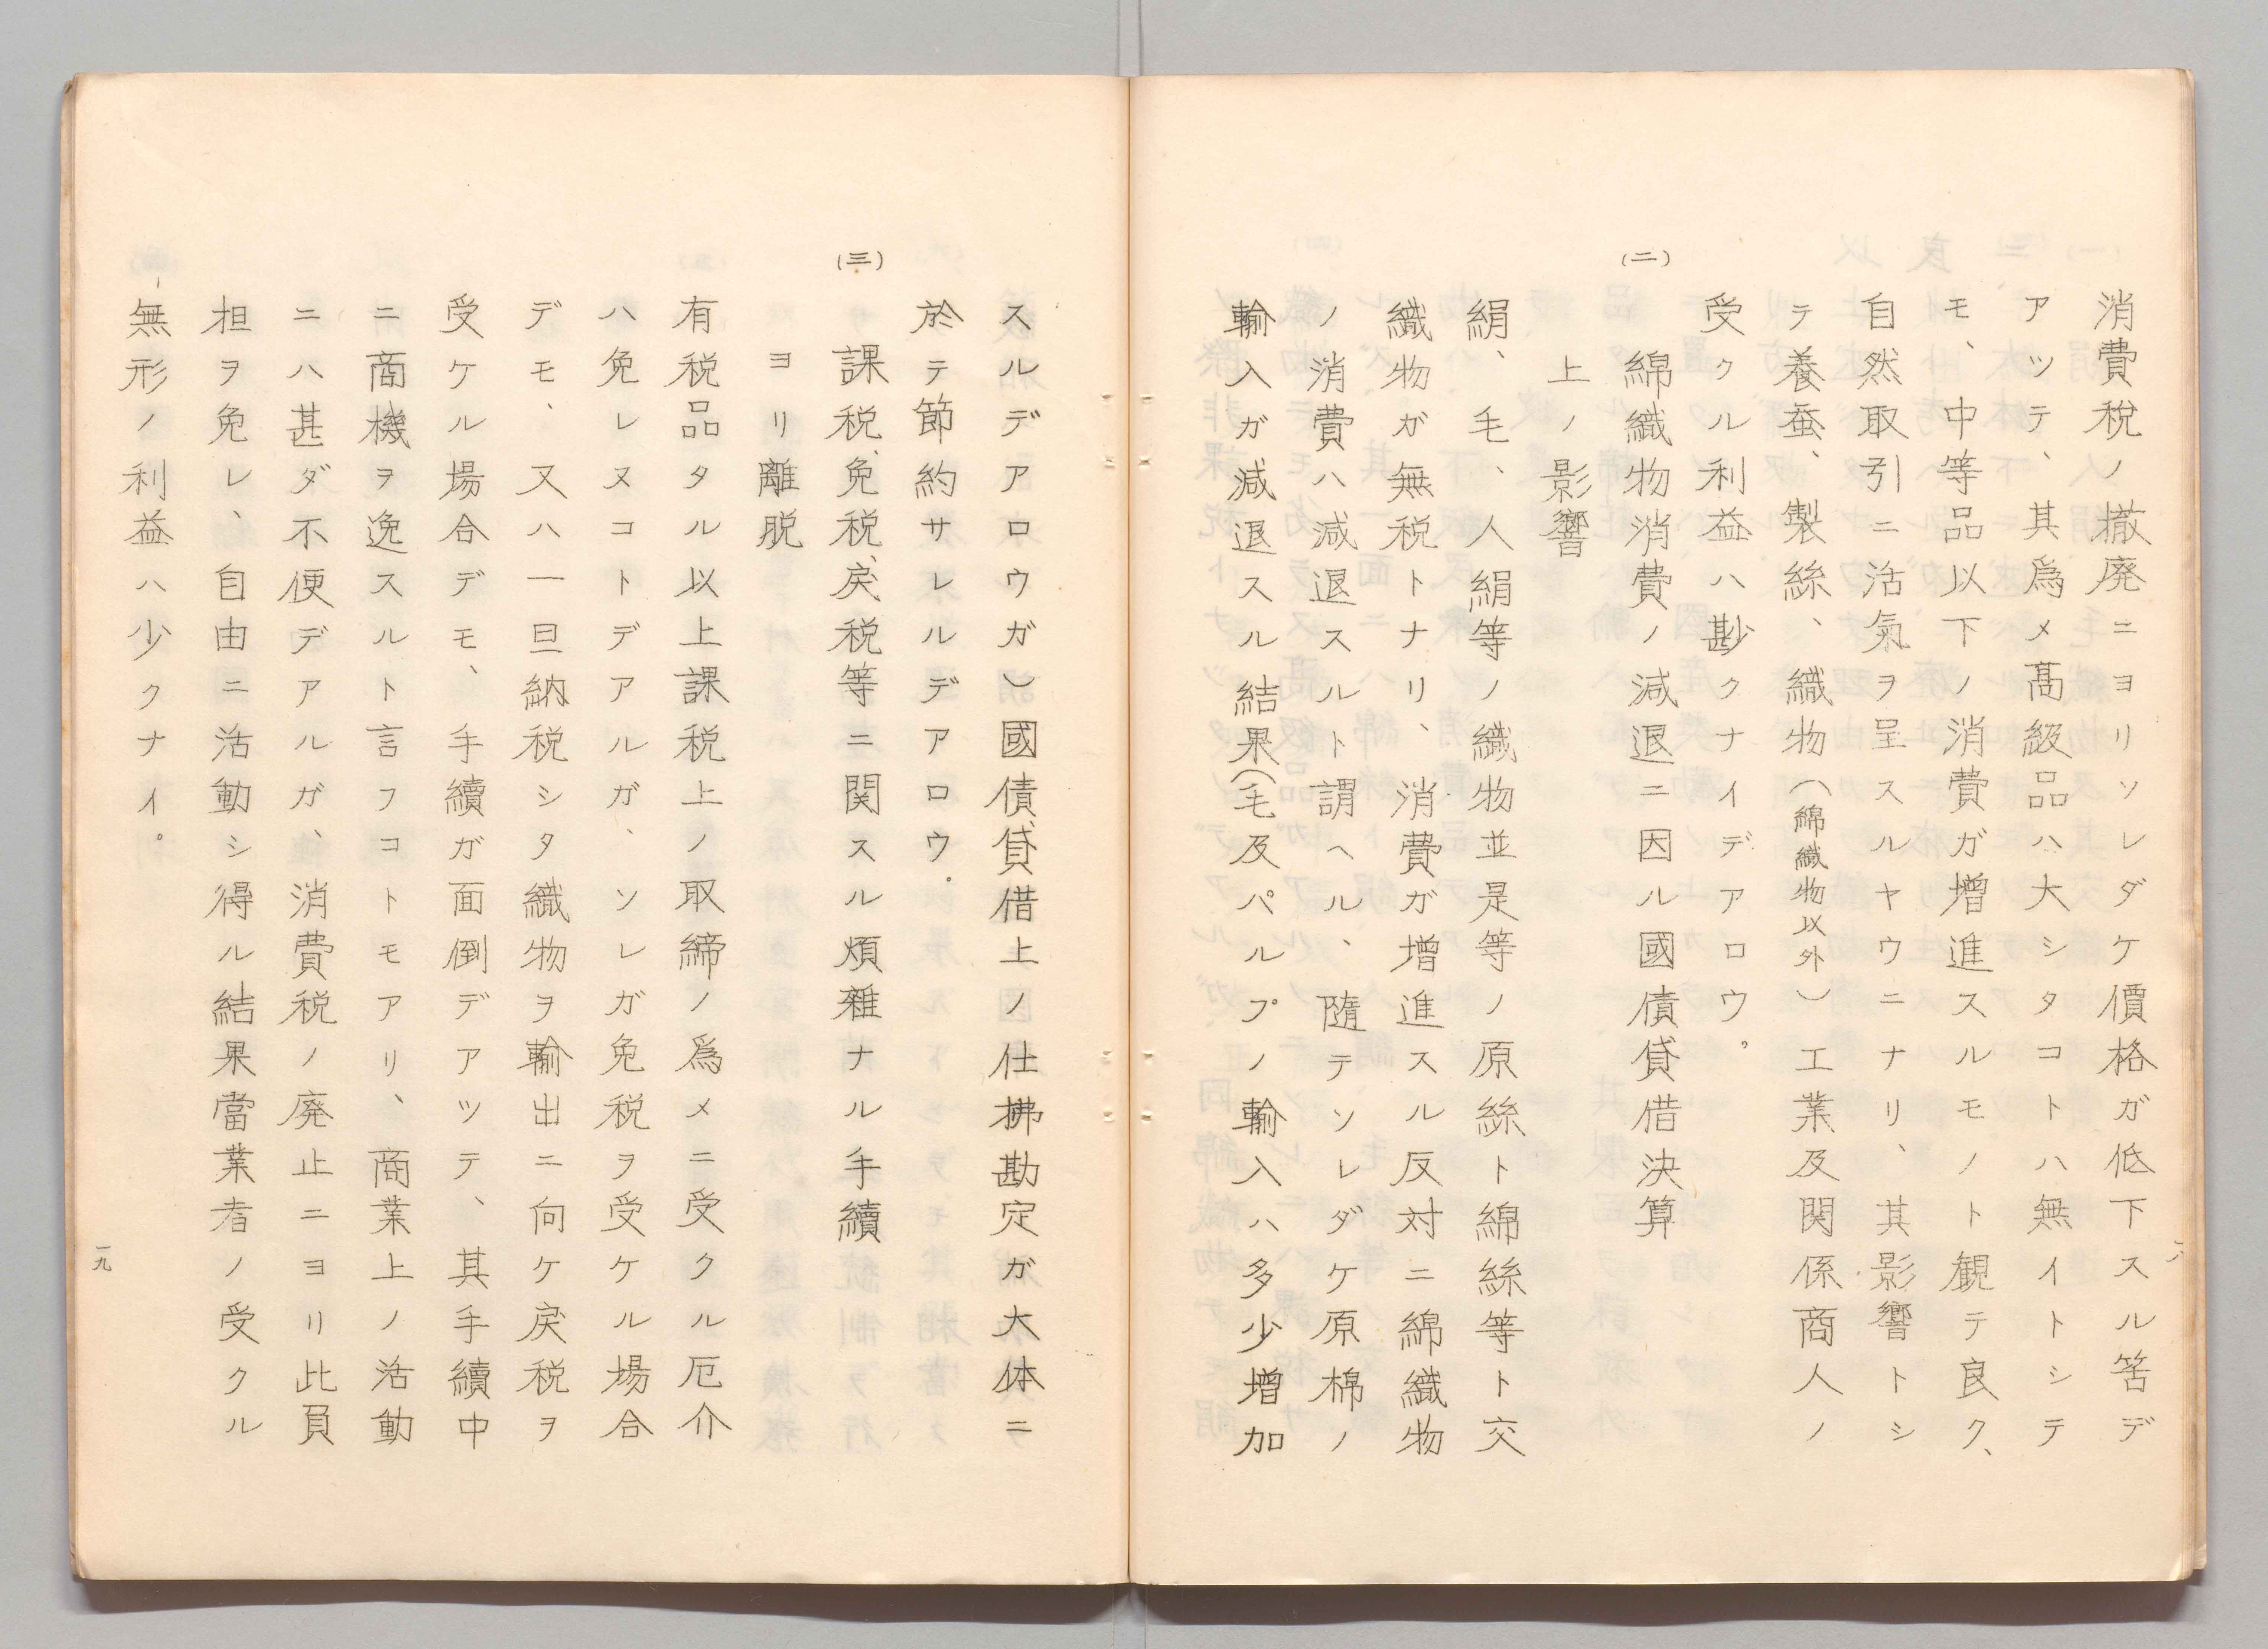 消費税ノ撤廃ニヨリソレダケ價格ガ低下スル筈デ
アツテ、其爲メ髙級品ハ大シタコトハ無イトシテ
モ、中等品以下ノ消費ガ增進スルモノト観テ良ク、
自然取引ニ活氣ヲ呈スルヤウニナリ、其影響トシ
テ養蚕、製絲、織物(綿織物以外)工業及関係商人ノ
受クル利益ハ尠クナイデアロウ。
(二)綿織物消費ノ減退ニ因ル國債貸借決算
上ノ影響
絹、毛、人絹等ノ織物並是等ノ原絲ト綿絲等ト交
織物ガ無税トナリ、消費ガ增進スル反対ニ綿織物
ノ消費ハ減退スルト謂ヘル、隨テソレダケ原棉ノ
輸入ガ減退スル結果(毛及パルプノ輸入ハ多少増加
スルデアロウガ)國債貸借上ノ仕拂勘定ガ大体ニ
於テ節約サレルデアロウ.
(三)課税、免税、戻税等ニ関スル煩雜ナル手續
ヨリ離脱
有税品タル以上課税上ノ取締ノ爲メニ受クル厄介
ハ免レヌコトデアルガ、ソレガ免税ヲ受ケル場合
デモ、又ハ一旦納税シタ織物ヲ輸出ニ向ケ戻税ヲ
受ケル場合デモ、手續ガ面倒デアツテ、其手續中
ニ商機ヲ逸スルト言フコトモアリ、商業上ノ活動
ニハ甚ダ不便デアルガ、消費税ノ廃止ニヨリ此負
担ヲ免レ、自由ニ活動シ得ル結果當業者ノ受クル
無形ノ利益ハ少クナイ。
一九